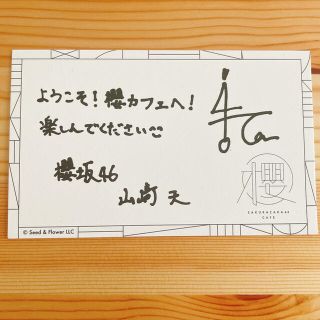 ようこそ!櫻カフェへ!
楽しんでください
櫻坂46
山﨑 天
櫻
SAKURAZAKA46
CAFE
© Seed & Flower LLC